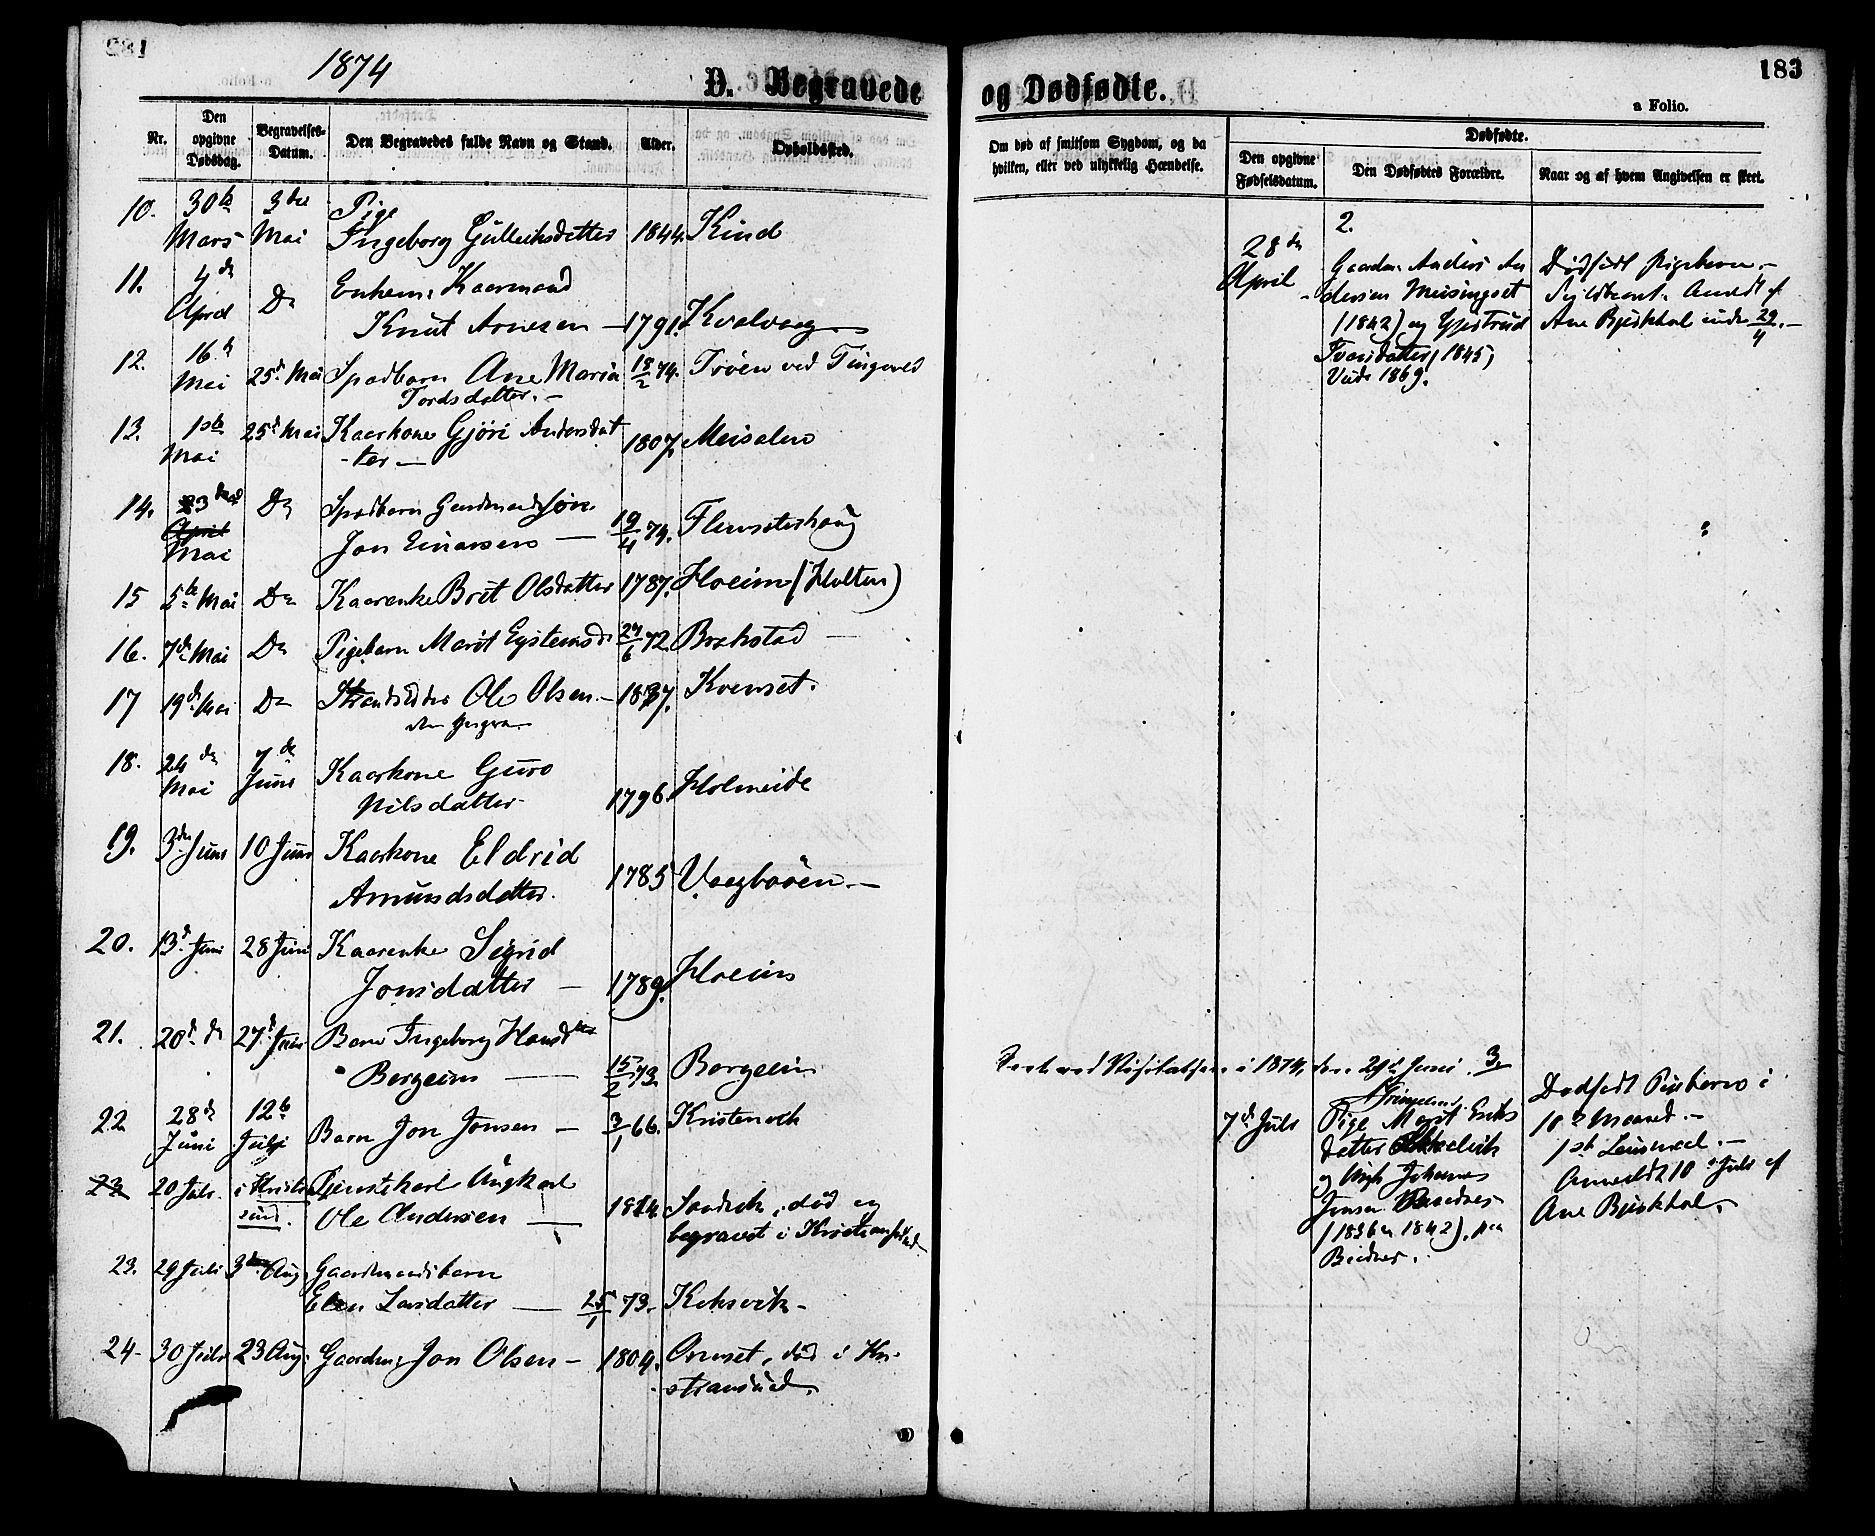 1874
D. Begravede og Dødfødte.
183
a Folio.
Nr.
Den opgivne Dødsdag.
Begravelses-Datum.
Den Begravedes fulde Navn og Stand.
Alder.
Opholdssted.
Om død af smitsom Sygdom, og da hvilken, eller ved ulykkelig Hændelse.
Dødfødte.
Den opgivne Fødselsdatum.
Den Dødfødtes Forældre.
Naar og af hvem Angivelsen er skeet.
10. 30te 3die Pige
Mars Mai Ingeborg Gulleiksdatter 1844. Kind
11. 4de Enkem. Kaarmand
April Do Knut Arnesen — 1791. Kvalvaag
12. 16d
Mai 25d Mai Spædbarn Ane Maria 18/2 74. Trøen ved Tingvold
Tordsdatter. —
13. 1ste 25d Mai Kaarkone Gjøri Andersdat
Mai -ter — 1807. Meisalen
14. 23 Do Spædbarn Gaardmandssøn
April
Mai Jon Einarsen — 19/4 74. Flemseterhaug
15 5te Mai Do Kaarenke Brit Olsdatter 1787. Hoeim (Holten)
16. 7d Mai Do Pigebarn Marit Eystensd. 27/6 72. Brekstad —
17 19d Mai Do Strandsidder Ole Olsen — 1837. Kvenset.
18. 24de 7de Kaarkone Guro
Mai Juni Nilsdatter 1796. Holmeide
19. 3die Juni 10 Juni Kaarkone Eldrid
Amundsdatter. 1785 Vaagbøen. —
20. 13d Juni 28 Juni Kaarenke Sigrid
Jonsdatter — 1789. Hoeim
21. 20d do 27d Juni Barn Ingeborg Hansdtr
Bergeim — 15/2 73. Bergeim
22 28d 12te
Juni Juli Barn Jon Jonsen — 3/1 66. Kristenvik
23 20 Juli i Kristian Tjenestekarl Ungkarl
sund. Ole Andersen — 1824. Sandvik, død og
begravet i Kristianssund
23. 29 Juli 3die Aug. Gaardmandsbarn
Elen Larsdatter — 25/1 73. Koksvik —
24 - 30 Juli 23 Aug. Gaardm. Jon Olsen — 1804. Ormset, død i Kri-
stiansund.
2.
28de
April
Gaardm. Anders An
dersen Meisingset
(1842) og Gjertrud
Ivarsdatter (1845)
Viede 1869.
Dødfødt Pigebarn. —
Anmeldt af
Ane Bjerkhol 29/4. —
Seet ved Visitatsen i 1874, den 29de Juni. 3.
7d Juli
Pige Marit Eriks
datter
og Ungk. Johannes
Jonsen
(1836 & 1842),
Dødfødt Pigebarn i
10de Maaned. —
1ste Leiermaal. —
Anmeldt 10de Juli af
Ane Bjerkhol.